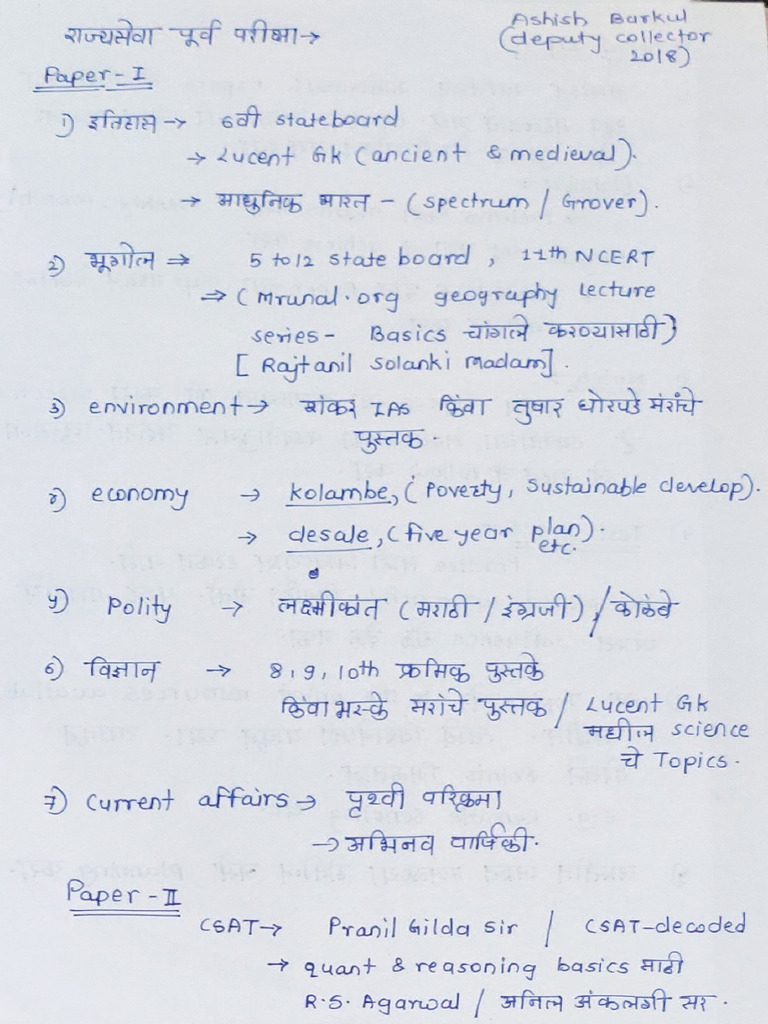 राज्यसेवा पूर्व परीक्षा →
Ashish Barkul
(deputy collector
2018)
Paper - I
१) इतिहास → 6वी stateboard
→ Lucent Gk (ancient & medieval).
→ आधुनिक भारत - (spectrum / Grover).
२) भूगोल → 5 to 12 state board , 11th NCERT
→ (Mrunal.org geography lecture
series - Basics चांगले करण्यासाठी)
[ Rajtanil Solanki madam].
३) environment → शंकर IAS किंवा तुषार घोरपडे सरांचे
पुस्तक.
४) economy → kolambe, ( Poverty, Sustainable develop).
→ desale, (five year plan).
etc.
५) Polity → लक्ष्मीकांत (मराठी / इंग्रजी) / कोळंबे
६) विज्ञान → 8, 9, 10th क्रमिक पुस्तके
किंवा भस्के सरांचे पुस्तक / Lucent Gk
मधील science
चे Topics.
7) Current affairs → पृथ्वी परिक्रमा
→ अभिनव वार्षिकी.
Paper - II
CSAT → Pranil Gilda Sir / CSAT-decoded
→ quant & reasoning basics साठी
R.S. Agarwal / अनिल अंकलगी सर.